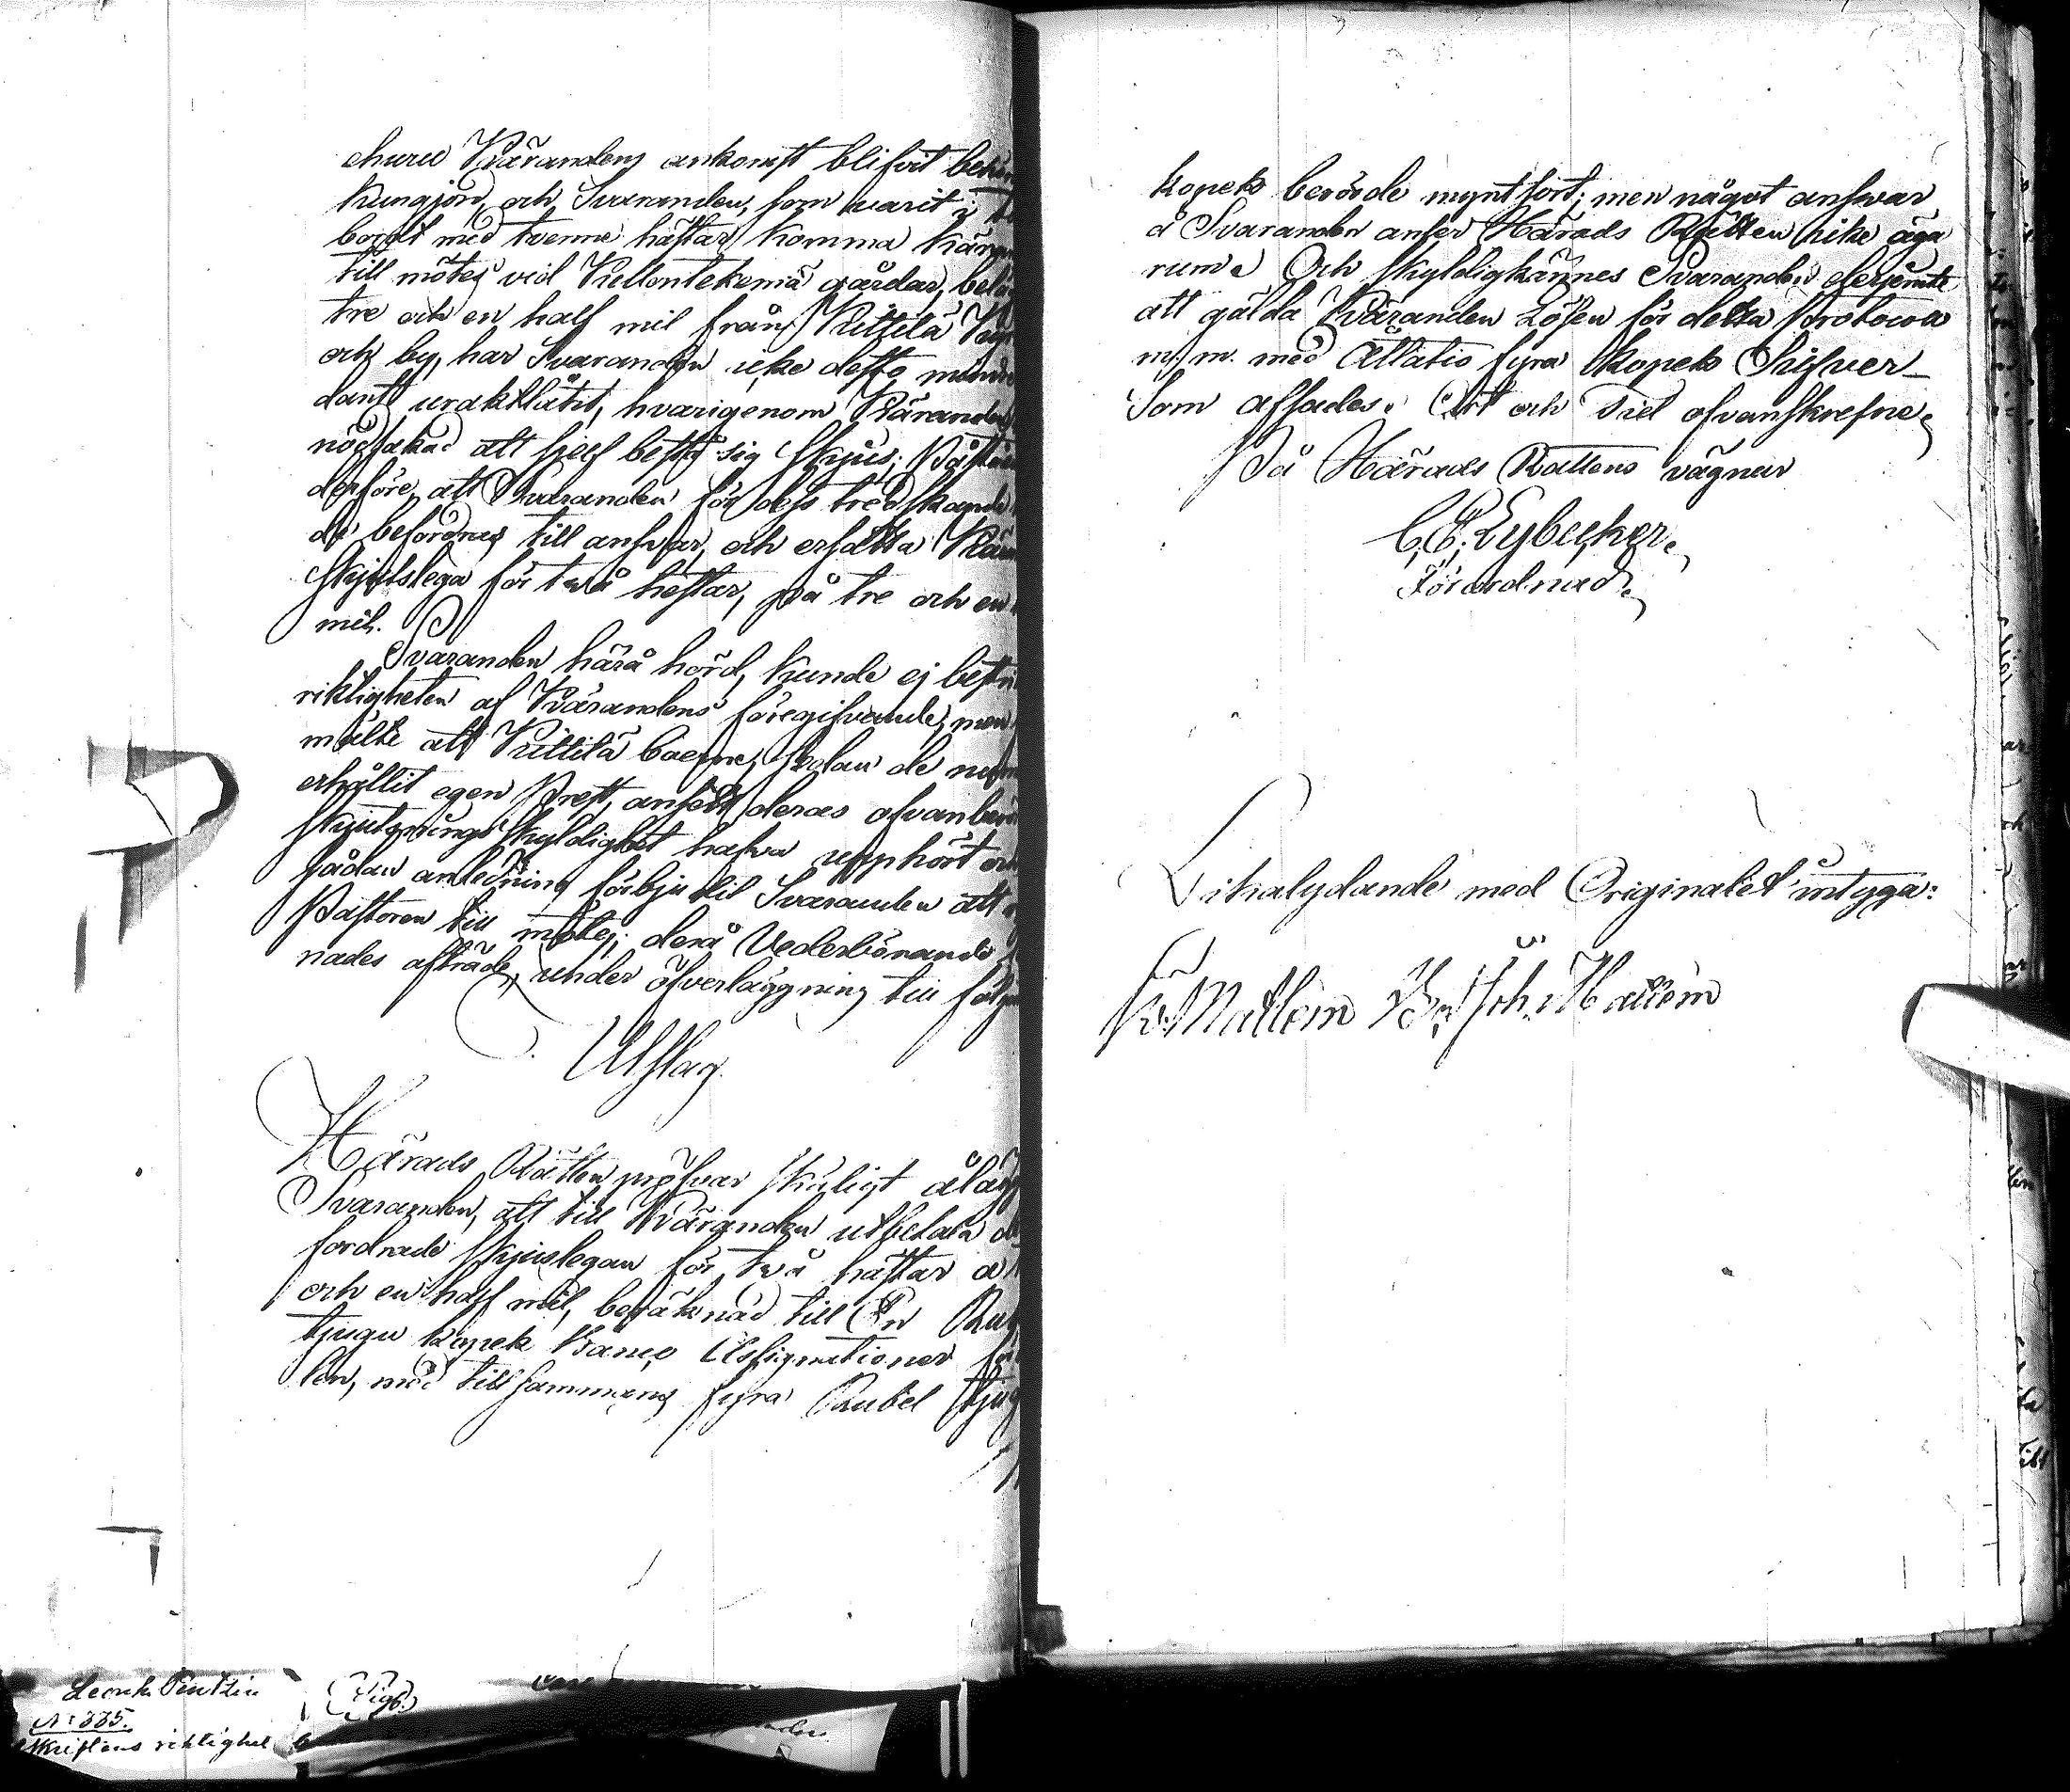 ehuru Kärandens ankomst blifvit behör
kungjord, och Svaranden, som varit i
bordt med tvenne hästar komma Käran
till mötes vid Kellontekemä gårdar, belä
tre och en half mil från Kittilä
och by, har Svaranden icke desto mindre
dant uraktlåtit, hvarigenom Käranden
nödsakad att sjelf bestå sig skjus; Påstån
derföre, att Svaranden för dess tredskande
de befordras till answar, och ersätta Kära
skjutslega för twå hestar, på tre och en
mil.
Svaranden härå hörd, kunde ej bestri
riktigheten af Kärandens föregifvande, men
mälte att Kittilä boerne, sedan de
erhållit egen Prest, ansedt deras ofvanberör
skjutsningsskyldighet hafva upphört och
sådan anledning förbjudit Svaranden att
Pastoren till mötes; derå Vederbörande
nades afträde, under öfverläggning till följ
Utslag.
Härads Rätten pröfvar skäligt ålägg
Svaranden, att till Käranden utbetala
fordrade skjuslegan för twå hästar å
och en half mil, beräknad till En Rub
tjugu kopek Banco Assignationer för
len, med tillsammans fyra Rubel tjug
kopek berörde myntsort; men något answar
å Svaranden anser Härads Rätten icke äga
rum. Och skyldigkännes Svaranden derjemte
att gälda Käranden Lösen för detta Protocoll
m. m. med Åttatio fyra kopek Silfver_
Som afsades. Ort och Tid ofvanskrefne.
På Härads Rättens vägnar
C. E. Lybecker.
Förordnad.
Likalydande med Originalet intyga:
Matlein Joh. Mattein
N:o 335.
riktighet